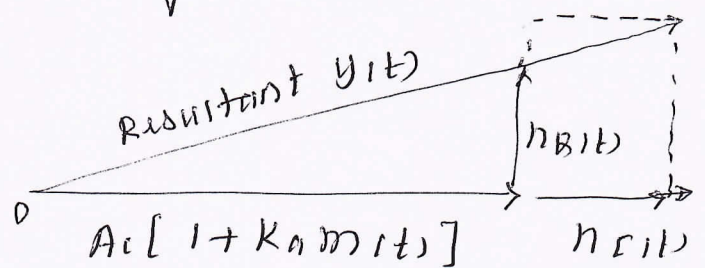 Resultant y(t)
nB(t)
0
Ac[1+Kam(t)]
nI(t)